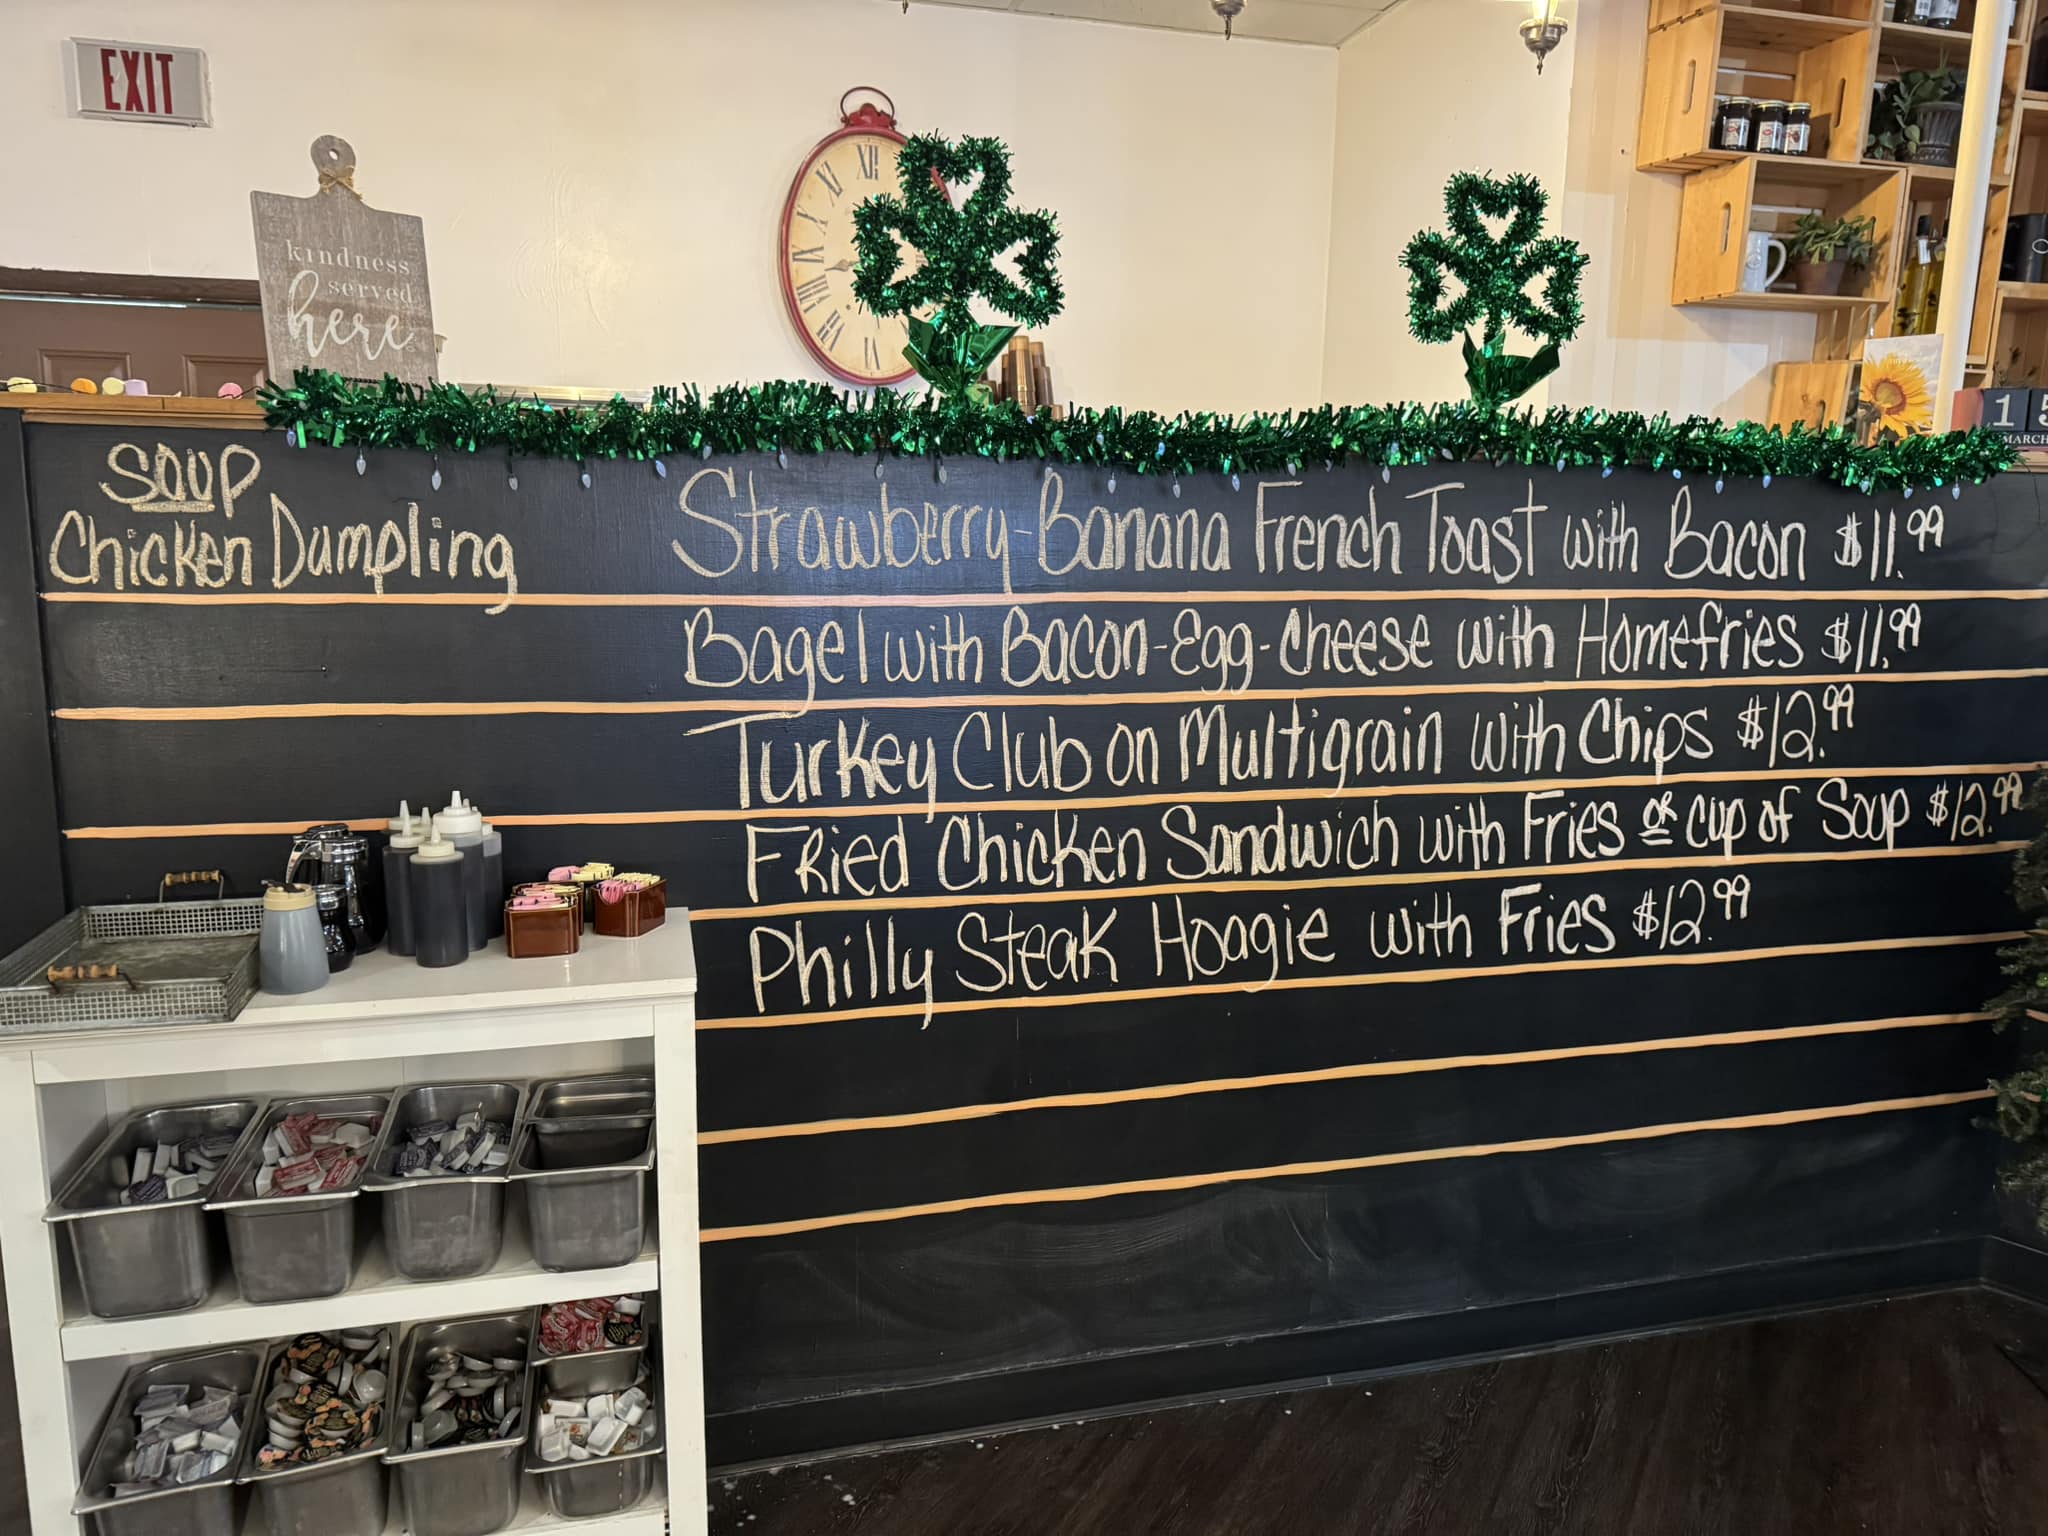 EXIT
kindness
served
here.
XII
15
MARCH
SOUP
Chicken Dumpling
Strawberry-Banana French Toast with Bacon $11.99
Bagel with Bacon-Egg-Cheese with Homefries $11.99
Turkey Club on Multigrain with Chips $12.99
Fried Chicken Sandwich with Fries or cup of Soup $12.99
Philly Steak Hoagie with Fries $12.99